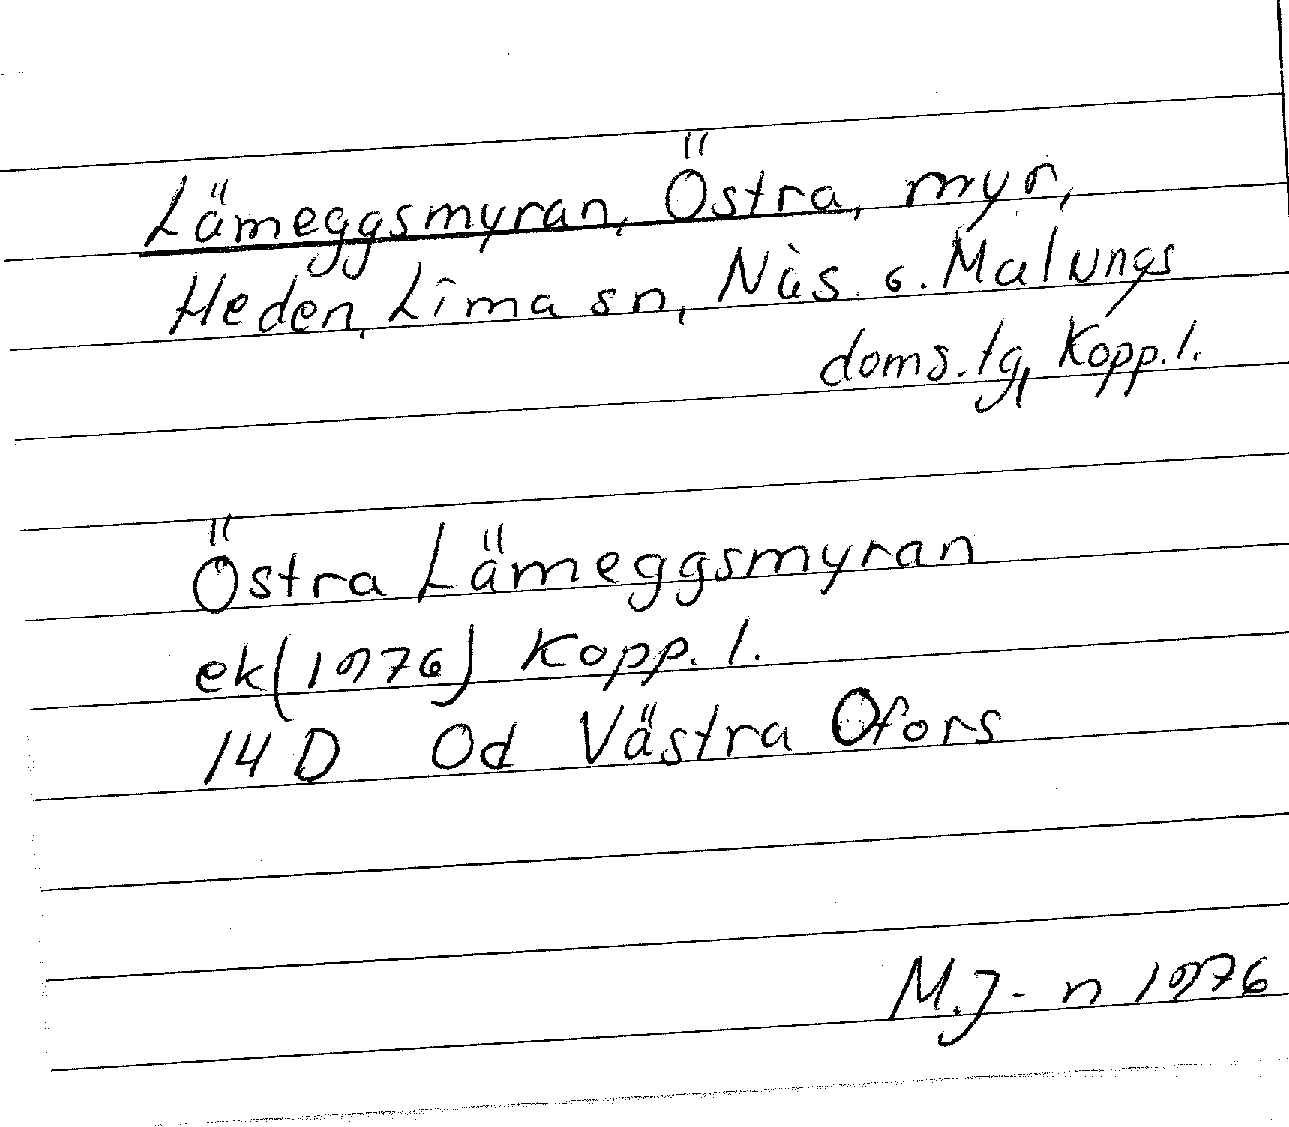 Lämeggsmyran, Östra, myr,
Heden, Lima sn, Nås o. Malungs
doms.lg, Kopp. l.
Östra Lämeggsmyran
ek (1976) Kopp. l.
14 D Od Västra Ofors
M.J-n 1976